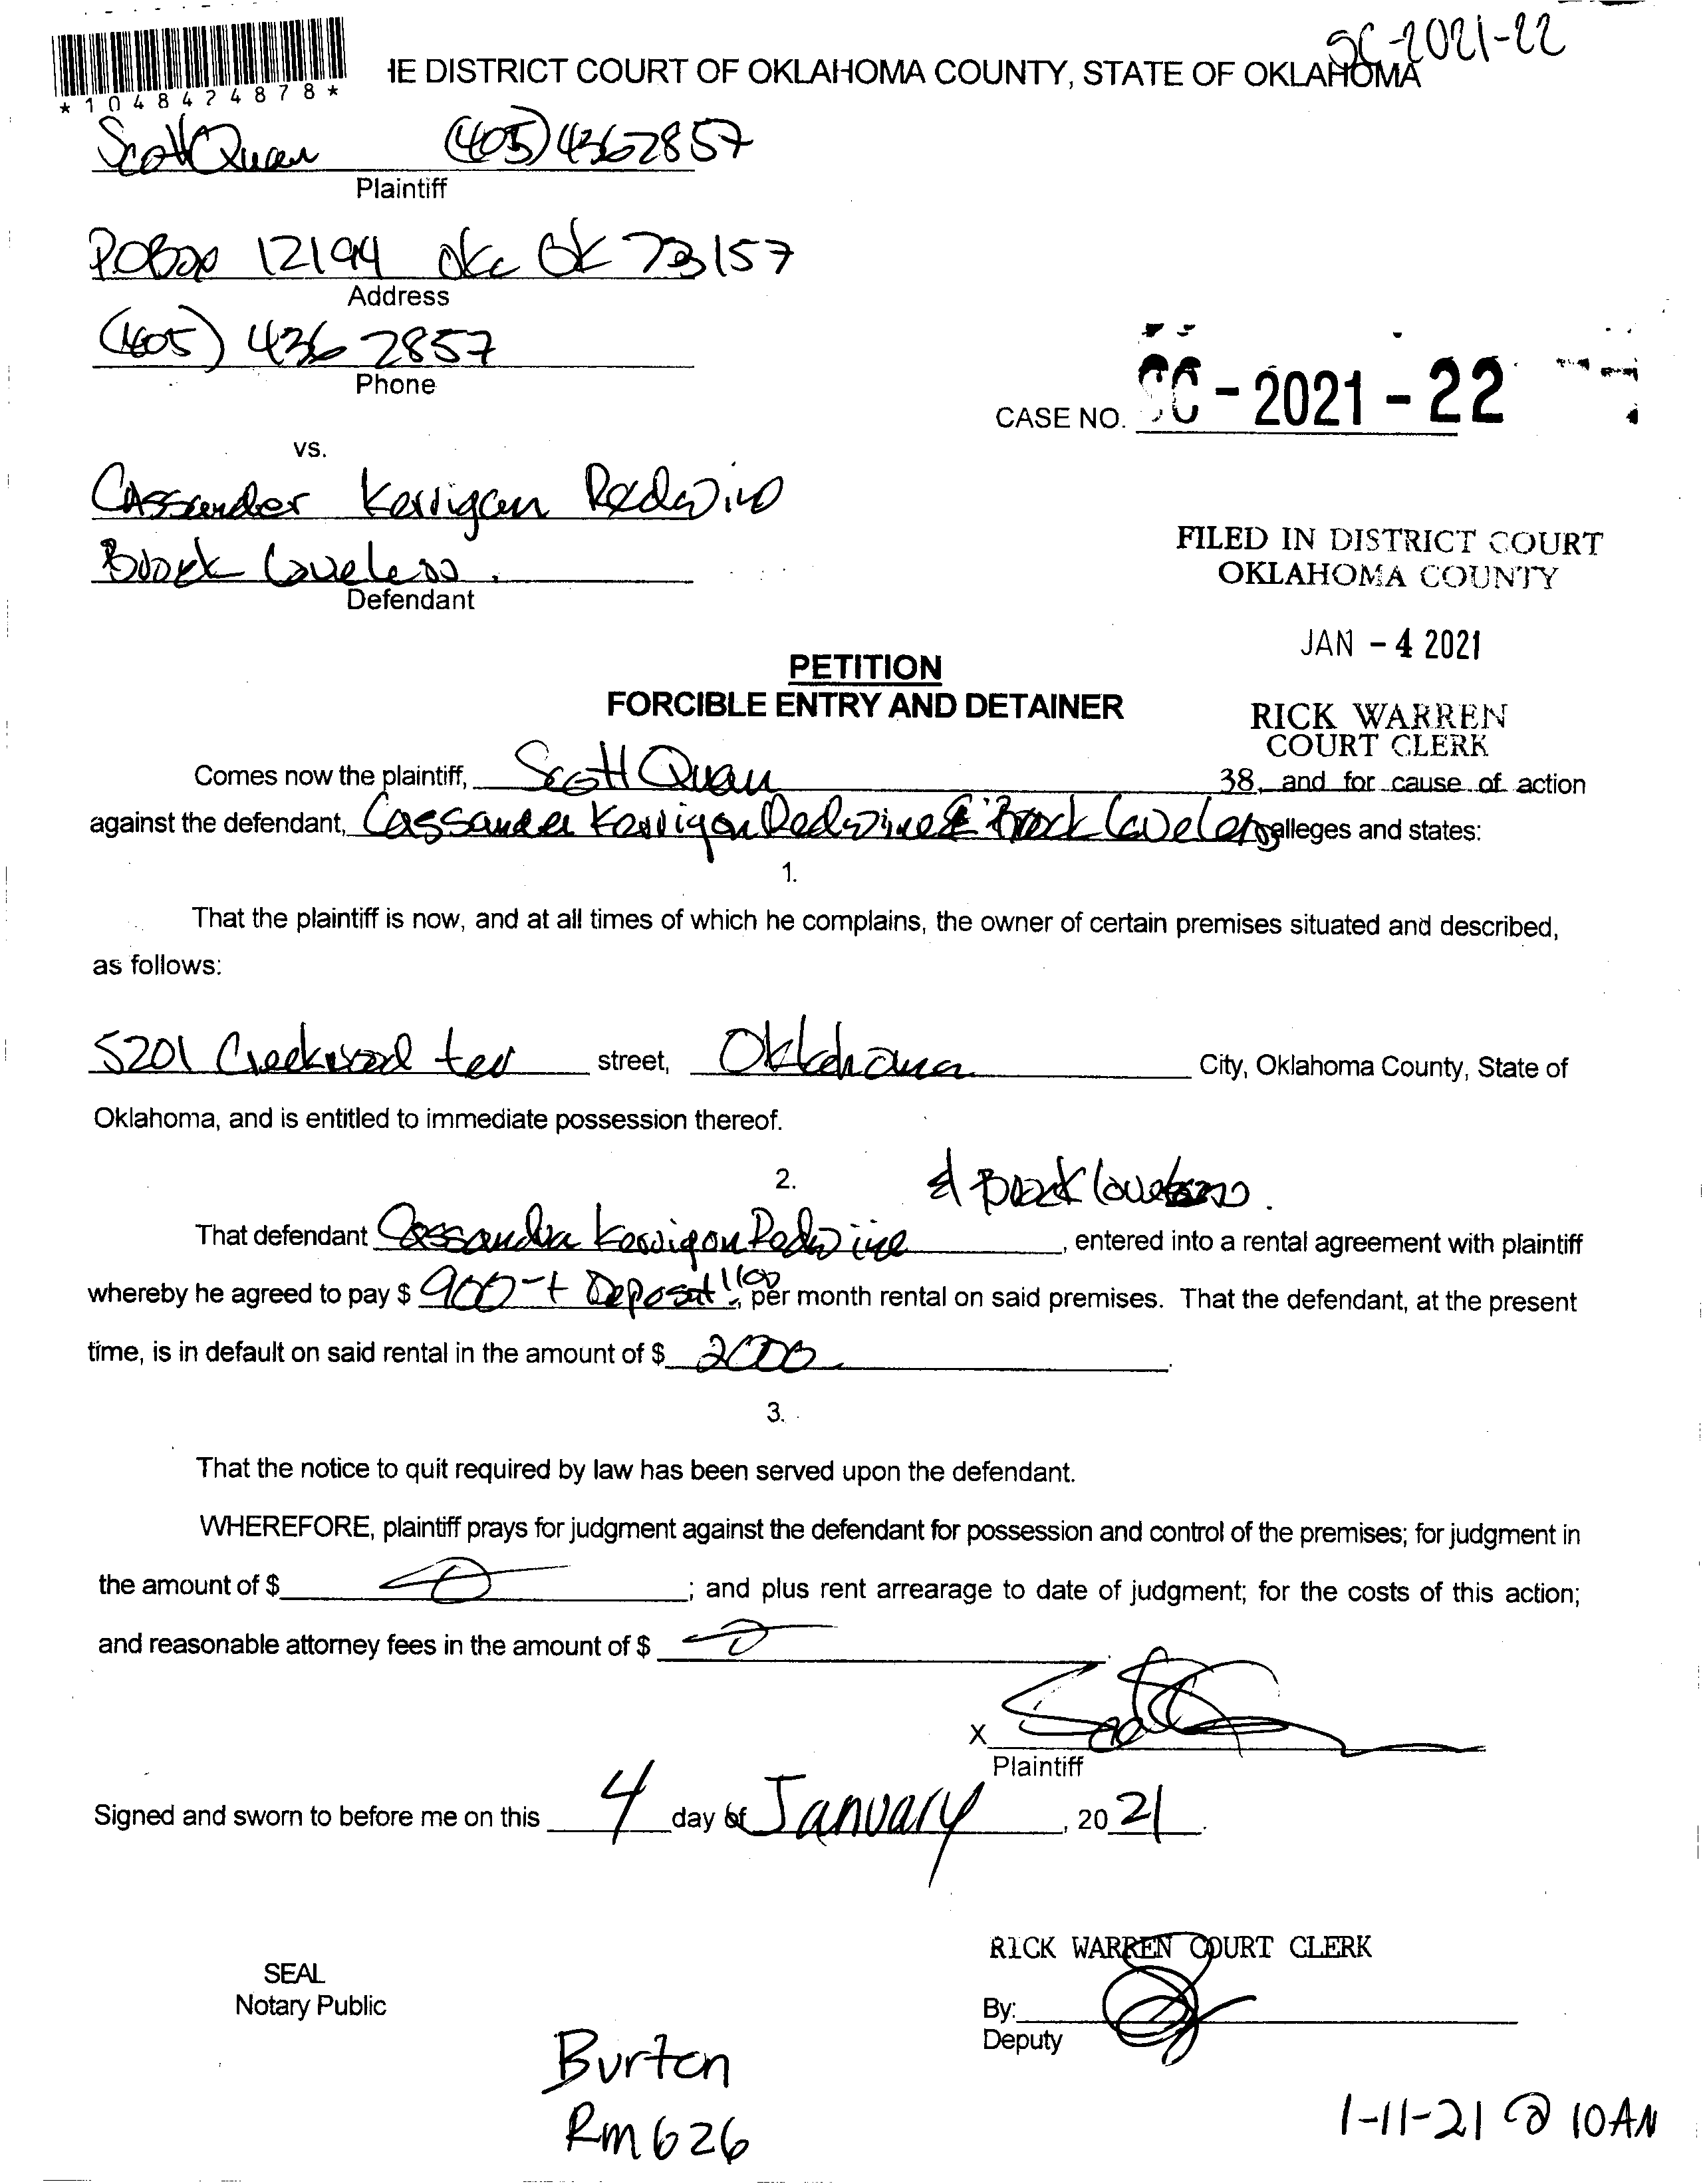 SC-2021-22
*1048424878*
IE DISTRICT COURT OF OKLAHOMA COUNTY, STATE OF OKLAHOMA
Scott Quan (405) 4362857
Plaintiff
POBox 12194 okc Ok 73157
Address
(405) 436 2857
Phone
CASE NO. SC - 2021 - 22
vs.
Cassander Kerrigan Redwine
Brock Loveless.
Defendant
FILED IN DISTRICT COURT
OKLAHOMA COUNTY
JAN - 4 2021
PETITION
FORCIBLE ENTRY AND DETAINER
RICK WARREN
COURT CLERK
Comes now the plaintiff, Scott Quan 38, and for cause of action
against the defendant, Cassander Kerrigan Redwine & Brock Loveless alleges and states:
1.
That the plaintiff is now, and at all times of which he complains, the owner of certain premises situated and described,
as follows:
5201 Creekwood ter street, Oklahoma City, Oklahoma County, State of
Oklahoma, and is entitled to immediate possession thereof.
2.
& Brock Loveless.
That defendant Cassandra Kerrigan Redwine, entered into a rental agreement with plaintiff
whereby he agreed to pay $ 900 + Deposit 1100 per month rental on said premises. That the defendant, at the present
time, is in default on said rental in the amount of $ 2000.
3.
That the notice to quit required by law has been served upon the defendant.
WHEREFORE, plaintiff prays for judgment against the defendant for possession and control of the premises; for judgment in
the amount of $ 0; and plus rent arrearage to date of judgment; for the costs of this action;
and reasonable attorney fees in the amount of $ 0.
X
Plaintiff
Signed and sworn to before me on this 4 day of January, 2021.
RICK WARREN COURT CLERK
SEAL
Notary Public
By:
Deputy
Burton
Rm 626
1-11-21 @ 10AM